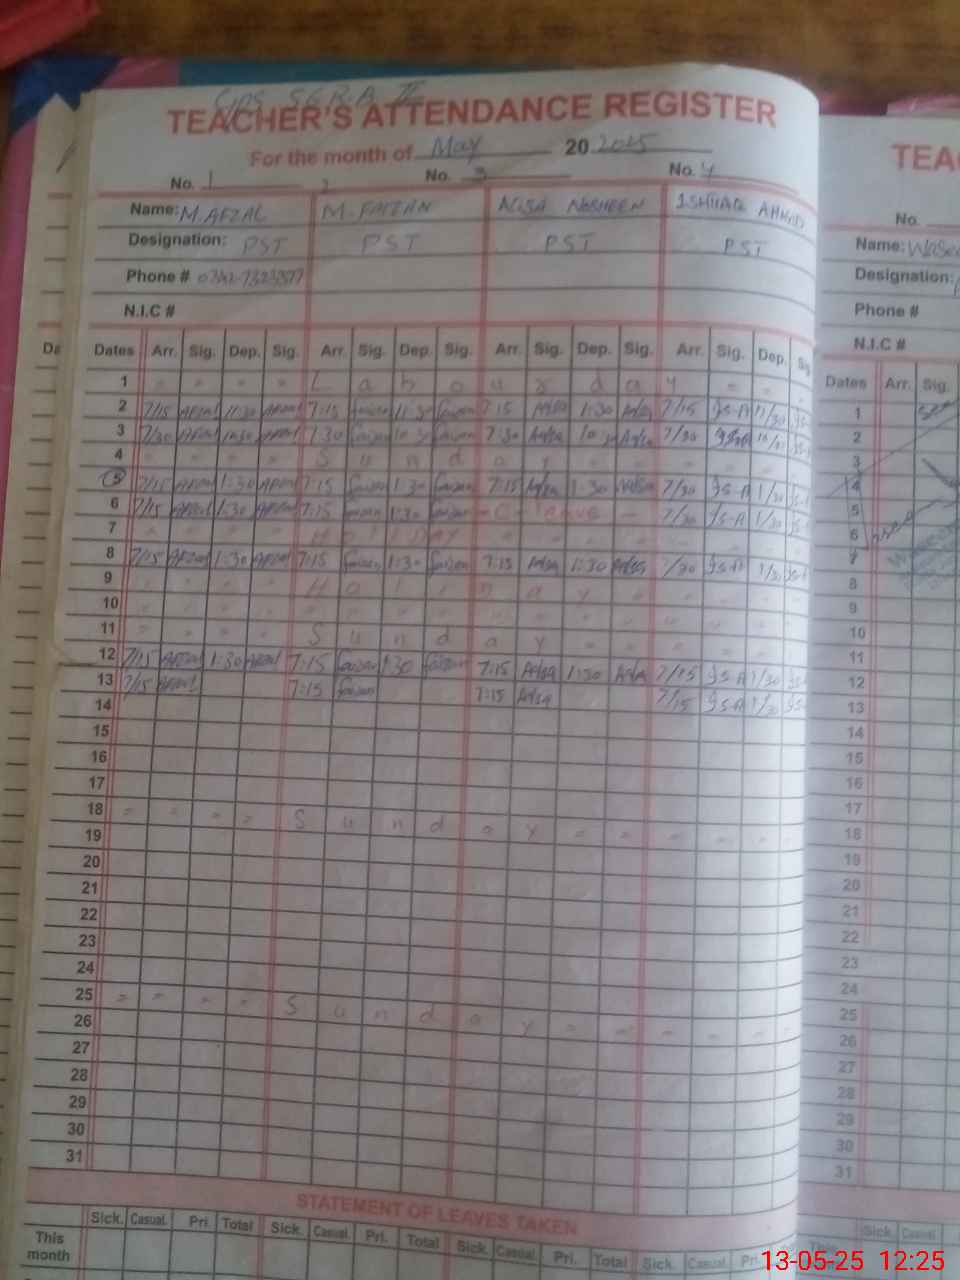 GPS SGRA II
TEACHER'S ATTENDANCE REGISTER
For the month of May 20 2025
No. 1 2 No. 3 No. 4
Name: M. AFZAL M. FAIZAN NOSHEEN ISHTIAQ AHMAD
Designation: PST PST PST PST
Phone #
N.I.C #
Dates Arr. Sig. Dep. Sig. Arr. Sig. Dep. Sig. Arr. Sig. Dep. Sig. Arr. Sig. Dep. Sig
1 " " " " L a b o u r d a y " " "
2 7/15 Afzal 11:30 Afzal 7:15 faizan 11:30 faizan 7:15 1:30 7/15 JS-A 11/30 JS-
3 7/30 Afzal 10:30 Afzal 7:30 faizan 10:30 faizan 7:30 10:30 7/30 10/30 JS-
4 S u n d a y
5 7/15 Afzal 1:30 Afzal 7:15 faizan 1:30 faizan 7:15 1:30 7/30 JS-A 1/30 JS-
6 7/15 Afzal 1:30 Afzal 7:15 faizan 1:30 faizan C-leave 7/30 JS-A 1/30 JS-
7 " " " "
8 7/15 Afzal 1:30 Afzal 7:15 faizan 1:30 faizan 7:15 1:30 7/30 JS-A 1/30 JS-
9 H o l i d a y
10 " " " "
11 " " " " S u n d a y " " "
12 7/15 Afzal 1:30 Afzal 7:15 faizan 1:30 faizan 7:15 1:30 7/15 JS-A 1/30 JS-
13 7/15 Afzal 7:15 faizan 7:15 7/15 JS-A 1/30 JS-
14
15
16
17
18 = = = = S u n d a y = = = - -
19
20
21
22
23
24
25 = = = = S u n d a y = = = - -
26
27
28
29
30
31
STATEMENT OF LEAVES TAKEN
Sick. Casual. Pri. Total Sick. Casual. Pri. Total Sick. Casual. Pri. Total Sick. Casual. Pri
This month
TEAC
No.
Name: Wasee
Designation:
Phone #
N.I.C #
Dates Arr. Sig.
1
2
3
4
5
6
7
8
9
10
11
12
13
14
15
16
17
18
19
20
21
22
23
24
25
26
27
28
29
30
31
Sick. Casual
Da
13-05-25 12:25